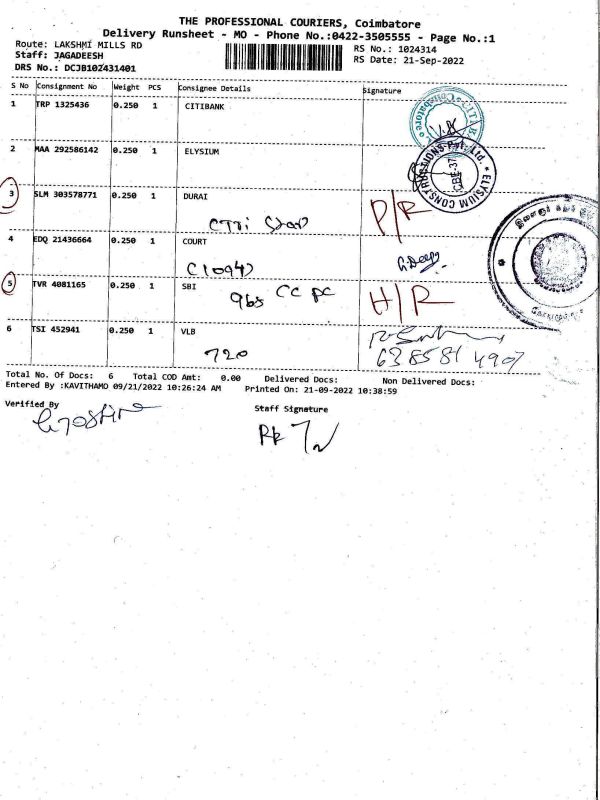 THE PROFESSIONAL COURIERS, Coimbatore
Delivery Runsheet - MO - Phone No.:0422-3505555 - Page No.:1
Route: LAKSHMI MILLS RD
RS No.: 1024314
Staff: JAGADEESH
RS Date: 21-Sep-2022
DRS No.: DCJB102431401
S No Consignment No Weight PCS Consignee Details Signature
1 TRP 1325436 0.250 1 CITIBANK
2 MAA 292586142 0.250 1 ELYSIUM
ELYSIUM CONSTRUCTIONS Pvt. Ltd.
CBE-37
3 SLM 303578771 0.250 1 DURAI
P/R
4 EDQ 21436664 0.250 1 COURT
5 TVR 4081165 0.250 1 SBI
H/R
6 TSI 452941 0.250 1 VLB
720
63 85 81 4907
Total No. Of Docs: 6 Total COD Amt: 0.00 Delivered Docs: Non Delivered Docs:
Entered By :KAVITHAMO 09/21/2022 10:26:24 AM Printed On: 21-09-2022 10:38:59
Verified By
Staff Signature